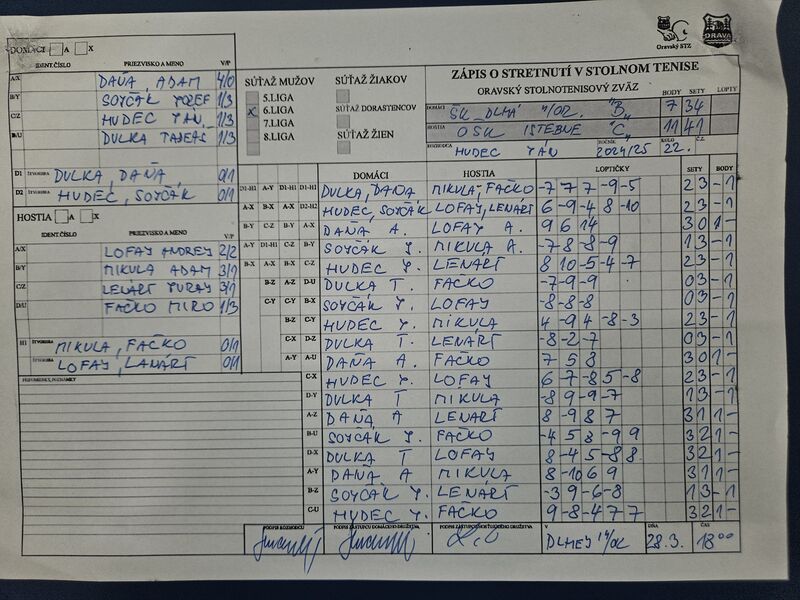 Oravský STZ
ORAVA
DOMÁCI A X
IDENT.ČÍSLO PRIEZVISKO A MENO V/P
A/X DAŇA, ADAM 4/0
B/Y SOYČÁK JOZEF 1/3
C/Z HUDEC JÁN, 1/3
D/U DULKA 1/3
D1 ŠTVORHRA DULKA, DAŇA, 0/1
D2 ŠTVORHRA HUDEC, SOYČÁK 0/1
HOSTIA A X
IDENT.ČÍSLO PRIEZVISKO A MENO V/P
A/X LOFAY ANDREJ 2/2
B/Y MIKULA ADAM 3/1
C/Z LENÁRT JURAJ 3/1
D/U FAČKO MIRO 1/3
H1 ŠTVORHRA MIKULA, FAČKO 0/1
ŠTVORHRA LOFAY, LANÁRT 0/1
PRIPOMIENKY, POZNÁMKY
SÚŤAŽ MUŽOV
5.LIGA
X 6.LIGA
7.LIGA
8.LIGA
SÚŤAŽ ŽIAKOV
SÚŤAŽ DORASTENCOV
SÚŤAŽ ŽIEN
ZÁPIS O STRETNUTÍ V STOLNOM TENISE
ORAVSKÝ STOLNOTENISOVÝ ZVÄZ BODY SETY LOPTY
DOMÁCI ŠK DLHÁ n/OR. "B" 7 34
HOSTIA OŠK ISTEBNÉ "C" 11 41
ROZHODCA HUDEC JÁN ROČNÍK 2024/25 KOLO 22. Č.Z.
DOMÁCI HOSTIA LOPTIČKY SETY BODY
D1-H1 A-Y D1-H1 D1-H1 DULKA, DAŇA MIKULA, FAČKO -7 7 7 -9 -5 2 3 - 1
A-X B-X A-X D2-H2 HUDEC, SOYČÁK LOFAY, LENÁRT 6 -9 -4 8 -10 2 3 - 1
B-Y C-Z B-Y A-X DAŇA A. LOFAY A. 9 6 14 3 0 1 -
A-Y D1-H1 C-Z B-Y SOYČÁK J. MIKULA A. -7 8 -8 -9 1 3 - 1
B-X A-X B-X C-Z HUDEC J. LENÁRT 8 10 -5 -4 -7 2 3 - 1
B-Z A-Z D-U DULKA T. FAČKO -7 -9 -9 0 3 - 1
C-Y C-Y B-X SOYČÁK J. LOFAY -8 -8 -8 0 3 - 1
B-Z C-Y HUDEC J. MIKULA 4 -9 4 -8 -3 2 3 - 1
C-X D-Z DULKA T. LENÁRT -8 -2 -7 0 3 - 1
A-Y A-U DAŇA A. FAČKO 7 5 8 3 0 1 -
C-X HUDEC J. LOFAY 6 -7 -8 5 -8 2 3 - 1
D-Y DULKA T MIKULA -8 9 -9 -7 1 3 - 1
A-Z DAŇA A LENÁRT 8 -9 8 7 3 1 1 -
B-U SOYČÁK J. FAČKO -4 5 8 -9 9 3 2 1 -
D-X DULKA T LOFAY 8 -4 5 -8 8 3 2 1 -
A-Y DAŇA A MIKULA 8 -10 6 9 3 1 1 -
B-Z SOYČÁK J. LENÁRT -3 9 -6 -8 1 3 - 1
C-U HUDEC J. FAČKO 9 -8 -4 7 7 3 2 1 -
PODPIS ROZHODCU PODPIS ZÁSTUPCU DOMÁCEHO DRUŽSTVA PODPIS ZÁSTUPCU HOSŤUJÚCEHO DRUŽSTVA V DŇA ČAS
DLHEJ n/OR 28.3. 18 00